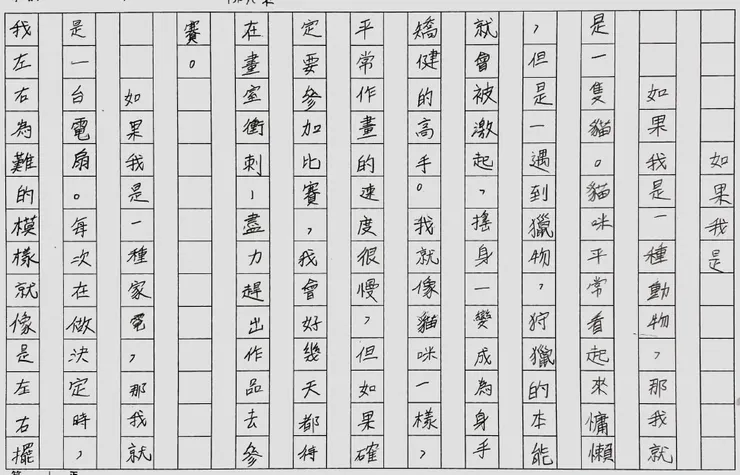 如果我是
如果我是一種動物，那我就
是一隻貓。貓咪平常看起來慵懶
，但是一遇到獵物，狩獵的本能
就會被激起，搖身一變成為身手
矯健的高手。我就像貓咪一樣，
平常作畫的速度很慢，但如果確
定要參加比賽，我會好幾天都待
在畫室衝刺，盡力趕出作品去參
賽。
如果我是一種家電，那我就
是一台電扇。每次在做決定時，
我左右為難的模樣就像是左右擺